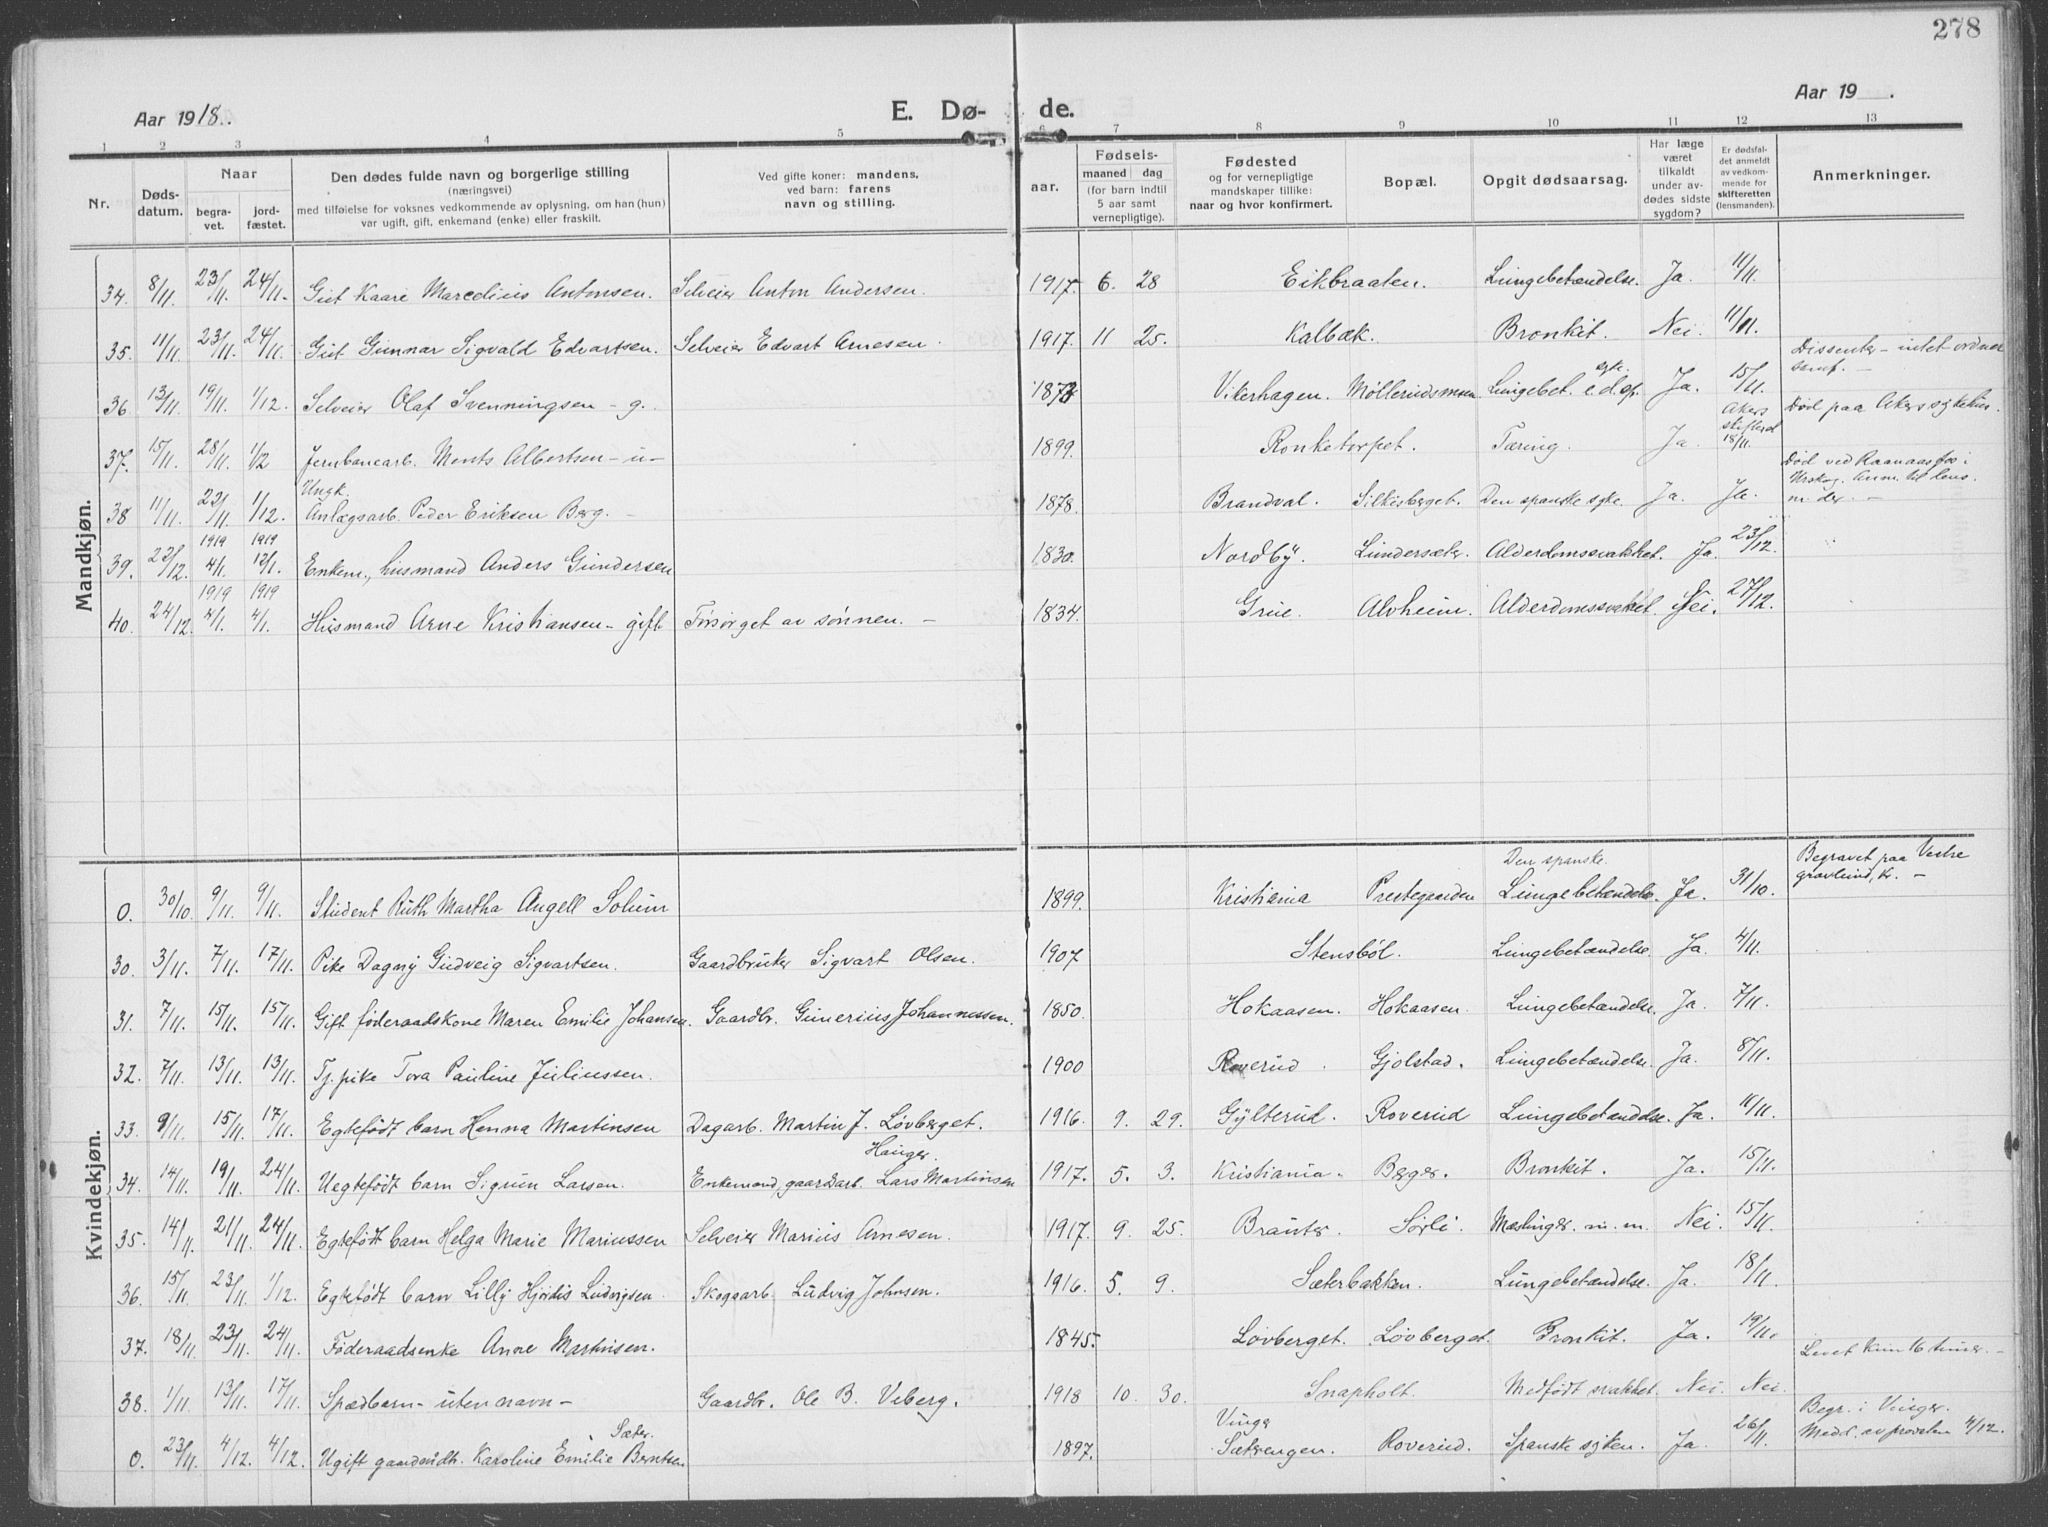 278
Aar 1918. E. Dø- de. Aar 19 .
1 2 3 4 5 6 7 8 9 10 11 12 13
Nr. Døds-datum. Naar begra-vet. jord-fæstet. Den dødes fulde navn og borgerlige stilling (næringsvei) med tilføielse for voksnes vedkommende av oplysning, om han (hun) var ugift, gift, enkemand (enke) eller fraskilt. Ved gifte koner: mandens, ved barn: farens navn og stilling. aar. Fødsels- maaned dag (for barn indtil 5 aar samt vernepligtige). Fødested og for vernepligtige mandskaper tillike: naar og hvor konfirmert. Bopæl. Opgit dødsaarsag. Har læge været tilkaldt under av-dødes sidste sygdom? Er dødsfal-det anmeldt av vedkom-mende for skifteretten (lensmanden). Anmerkninger.
Mandkjøn.
34. 8/11. 23/11. 24/11. Gut Kaare Marcelius Antonsen. Selveier Anton Andersen. 1917. 6. 28 Eikbraaten. Lungebetændelse. Ja. 11/11.
35. 11/11. 23/11. 24/11. Gut Gunnar Sigvald Edvartsen. Selveier Edvart Arnesen. 1917. 11 25. Kalbæk. Bronkit. Nei. 11/11. Dissenter – intet ordnet samf. –
36. 13/11. 19/11. 1/12. Selveier Olaf Svenningsen – g. Vikerhagen. Møllerudsmoen Lungebet. e. d. sp. syke. Ja. 15/11.
37. 15/11. 28/11. 1/12 Jernbanearb. Ments Albertsen – u – 1899. Ronketorpet. Tæring. Ja. Akers skifteret 18/11. Død paa Akers sykehus.
38 11/11. 22/11. 1/12. Ungk. Anlægsarb. Peder Eriksen Berg. – 1878. Brandval. Silkisberget. Den spanske syke. Ja. Ja. Død ved Raanaasfos i Urskog. Anm. til lens m. der. –
39. 22/12. 1919 4/1. 1919 12/1. Enkem., husmand Anders Gundersen 1830. Nordby. Lundersæter. Alderdomssvakket. Ja. 23/12.
40. 24/12. 1919 4/1. 1919 4/1. Husmand Arne Kristiansen – gift Forsørget av sønnen. – 1834. Grue. Alvheim. Alderdomssvakket. Nei. 27/12.
Kvindekjøn.
0. 30/10. 9/11. 9/11. Student Ruth Martha Angell Solum 1899. Kristiania Prestegaarden Den spanske. Lungebetændelse. Ja. 31/10. Begravet paa Vestre gravlund, Kr. –
30. 3/11. 7/11. 17/11. Pike Dagny Gudveig Sigvartsen. Gaardbruker Sigvart Olsen. 1907 Stensbøl. Lungebetændelse Ja 4/11.
31. 7/11. 15/11. 15/11. Gift føderaadskone Maren Emilie Johansen. Gaardbr. Gunerius Johannessen. 1850. Hokaasen. Hokaasen. Lungebetændelse. Ja. 7/11.
32. 7/11. 13/11. 13/11. Tj. pike Tora Pauline Juliussen. 1900 Roverud Gjølstad. Lungebetændelse Ja. 8/11.
33. 9/11. 15/11. 17/11. Egtefødt barn Henna Martinsen Dagarb. Martin J. Løvberget. 1916. 9. 29. Gylterud. Roverud Lungebetændelse. Ja. 11/11.
34. 14/11. 19/11. 24/11. Uegtefødt barn Sigrun Larsen. Enkemand, gaardarb. Lars Martinsen Hauger. 1917. 5. 3. Kristiania. Berger. Bronkit. Ja. 15/11.
35. 14/11. 21/11. 24/11. Egtefødt barn Helga Marie Mariussen Selveier Marius Arnesen. 1917. 9 25. Brauter. Sørli. Meslinger m. m. Nei. 15/11.
36. 15/11. 23/11. 1/12. Egtefødt barn Lilly Hjørdis Ludvigsen. Skogarb. Ludvig Johnsen. 1916. 5. 9. Sæterbakken. Lungebetændelse. Ja. 18/11.
37. 18/11. 23/11. 24/11. Føderaadsenke Anne Martinsen. 1845. Løvberget. Løvberget. Bronkit. Ja. 19/11.
38. 1/11. 13/11. 17/11. Spædbarn – uten navn – Gaardbr. Ole B. Viberg. 1918 10. 30. Snapholt. Medfødt svakket. Nei. Nei. Levet kun 16 timer. –
0. 23/11. 4/12. 4/12. Ugift gaardmdtr. Karoline Emilie Berntsen Sæter. 1897. Vinger Sætrengen. Roverud. Spanske syken. Ja. 26/11. Begr. i Vinger. Medd. av provsten 4/12.